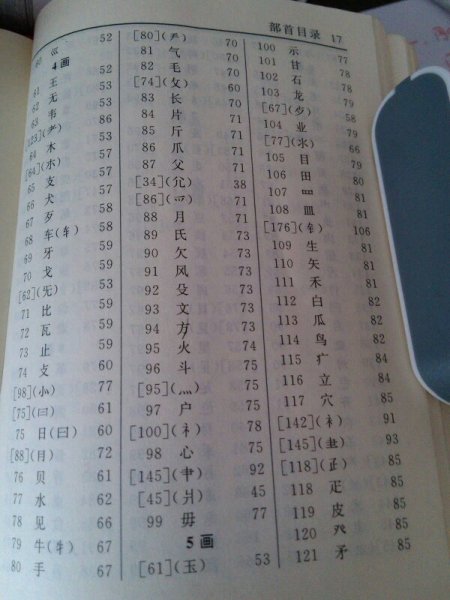 部首目录 17
52
4画
61 王 52
62 无 52
63 韦 56
[123](耂) 56
64 木 57
[64](朩) 57
65 支 57
66 犬 58
67 歹 58
68 车(车) 59
69 牙 59
70 戈 59
[62](旡) 59
71 比 59
72 瓦 59
73 止 59
74 攴 60
[98](㣺) 77
[75](曰) 61
75 日(曰) 60
[88](⺝) 72
76 贝 61
77 水 62
78 见 66
79 牛(牜) 67
80 手 67
[80](龵) 70
81 气 70
82 毛 70
[74](攵) 60
83 长 70
84 片 71
85 斤 71
86 爪 71
87 父 71
[34](尣) 38
[86](爫) 71
88 月 71
89 氏 73
90 欠 73
91 风 73
92 殳 73
93 文 73
94 方 73
95 火 74
96 斗 75
[95](灬) 75
97 户 75
[100](礻) 78
98 心 75
[145](肀) 92
[45](爿) 45
99 毋 77
5画
[61](玉) 53
100 示 77
101 甘 78
102 石 78
103 龙 79
[67](歺) 58
104 业 79
[77](氺) 66
105 目 79
106 田 80
107 罒 81
108 皿 81
[176](钅) 106
109 生 81
110 矢 81
111 禾 81
112 白 82
113 瓜 82
114 鸟 82
115 疒 84
116 立 84
117 穴 85
[142](衤) 91
[145](⺻) 93
[118](𤴔) 85
118 疋 85
119 皮 85
120 癶 85
121 矛 85